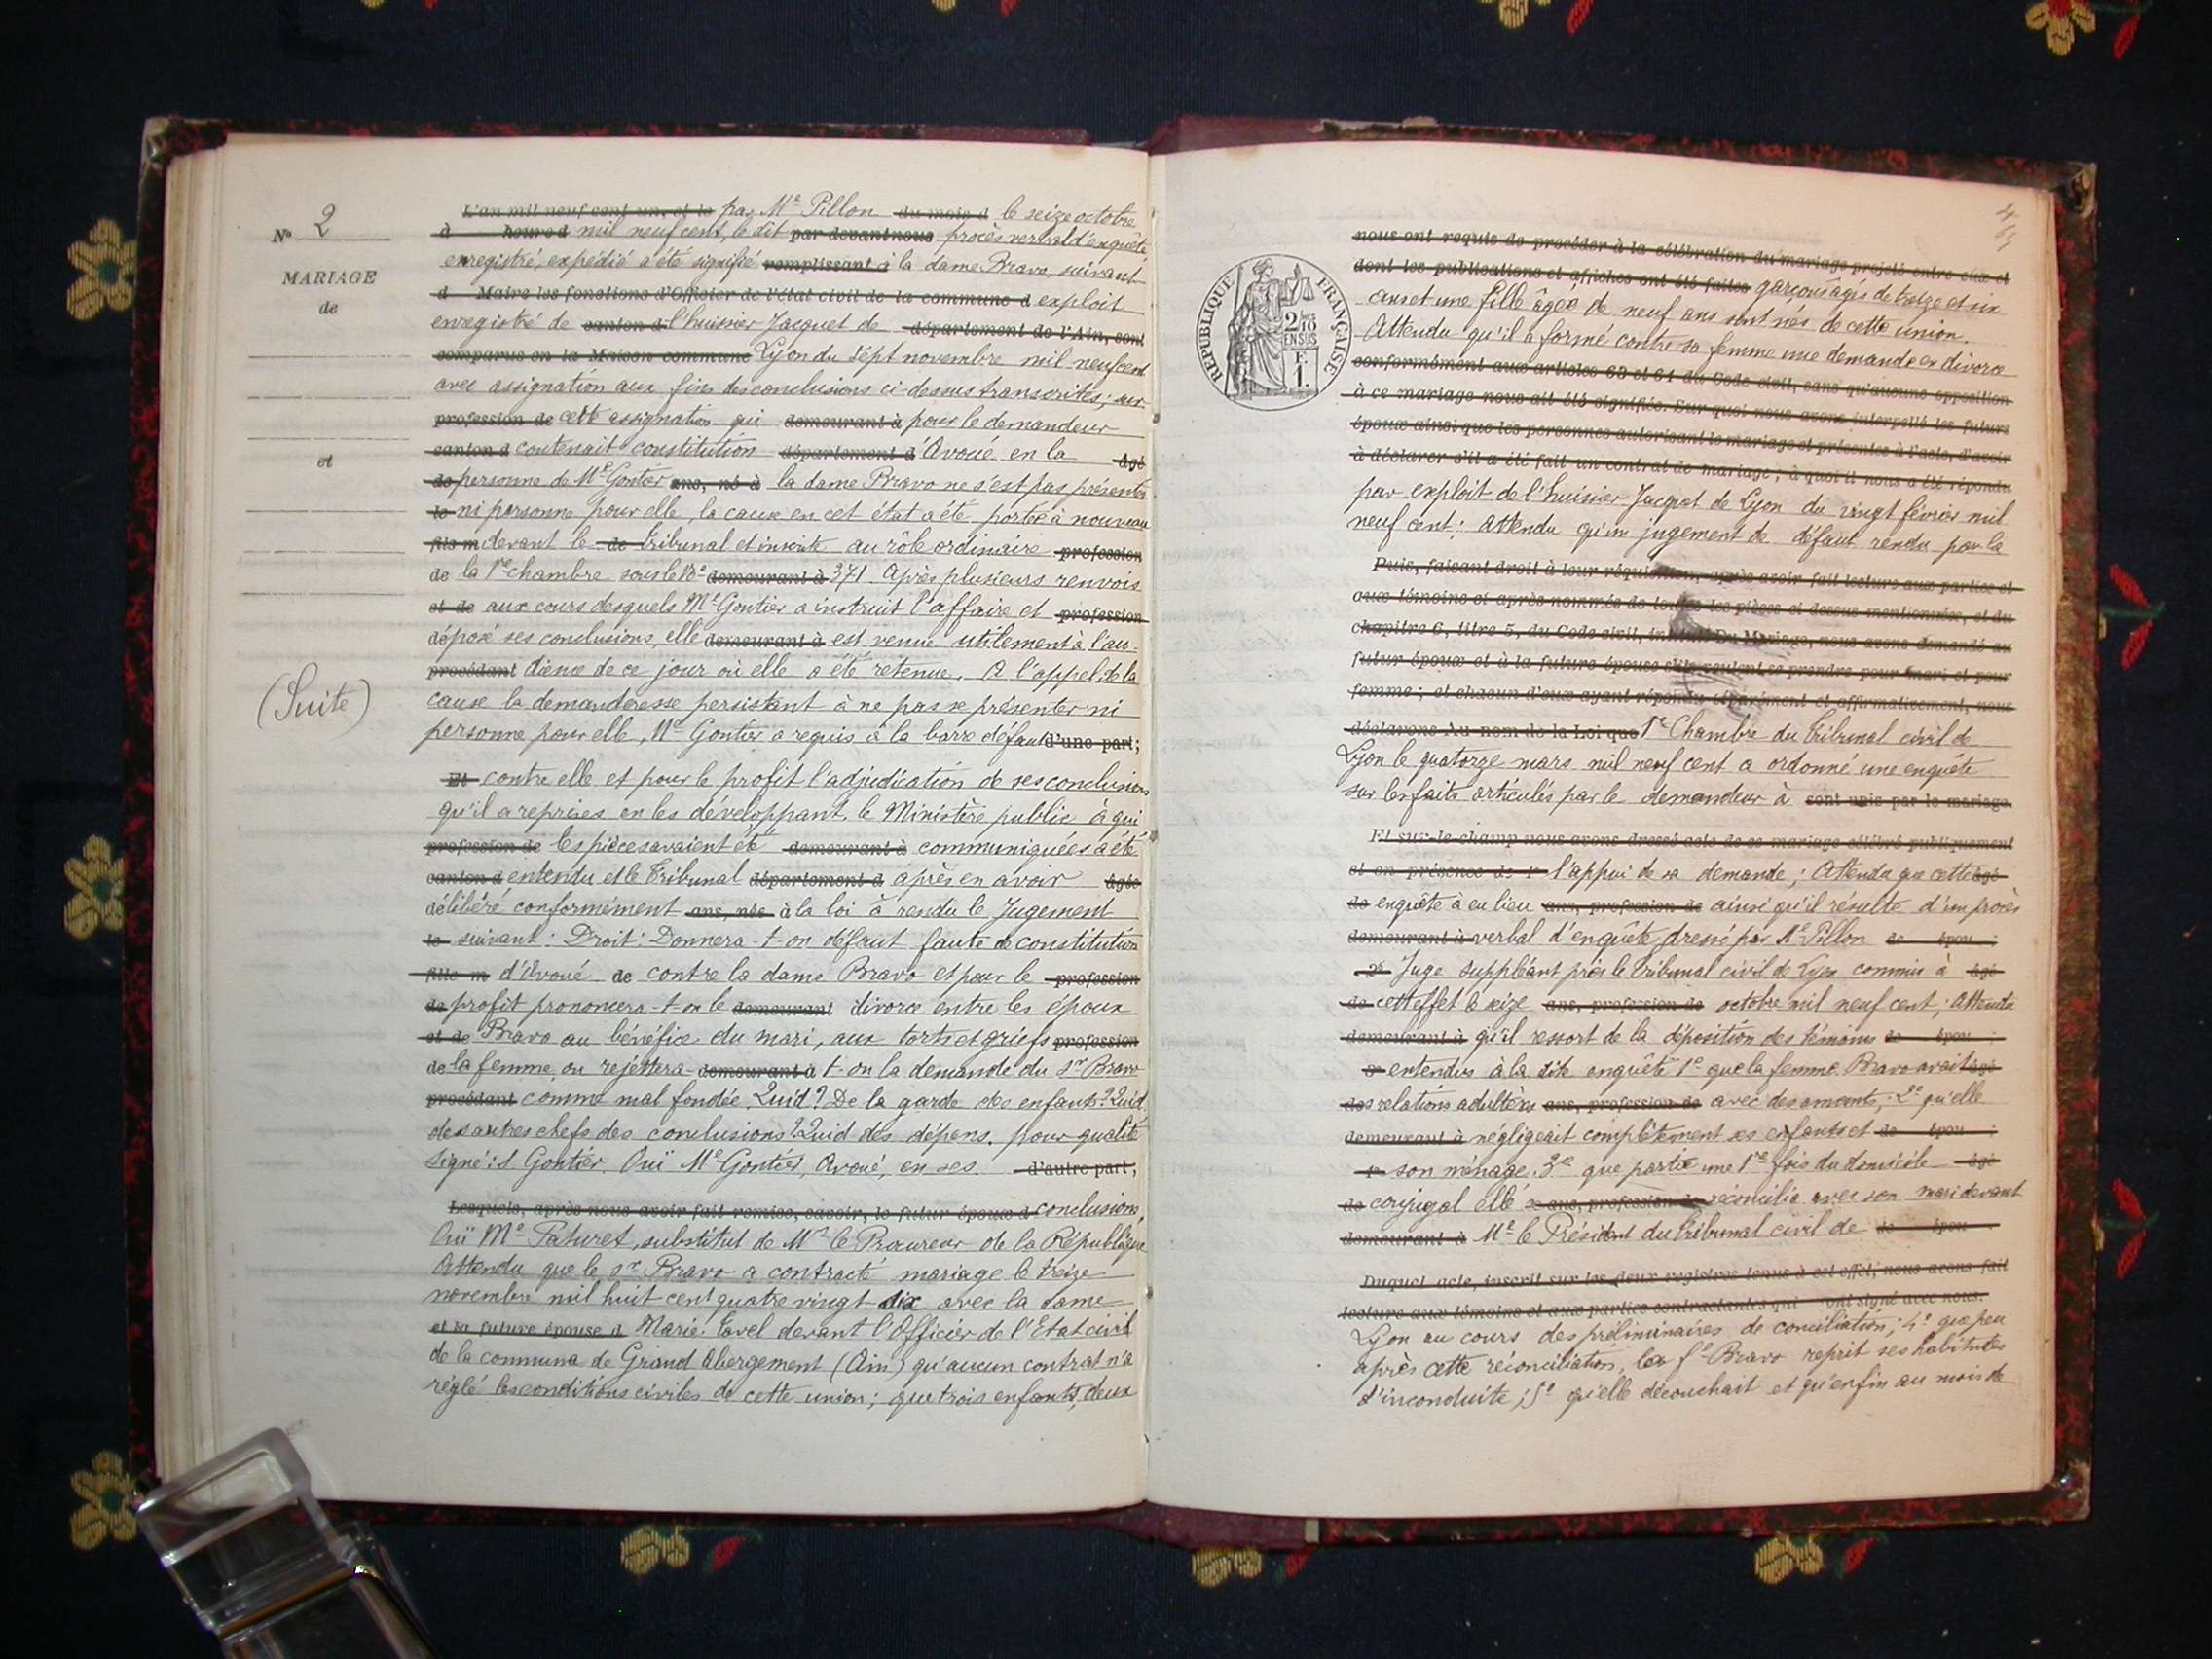 N° 2
MARIAGE
de
et
(Suite)
L'an mil neuf cent un, et le par Me Pillon du mois d le seize octobre
à heure d mil neuf cent, le dit par devant nous procès verbal d'enquête
enregistré, expédié a été signifié remplissant à la dame Bravo, suivant
d Maire les fonctions d'Officier de l'état civil de la commune d exploit
enregistré de canton d l'huissier Jacquet de département de l'Ain, sont
comparus en la Maison commune Lyon du sept novembre mil neuf cent
avec assignation aux fins des conclusions ci-dessus transcrites; sur
profession de cette assignation qui demeurant à pour le demandeur
canton d contenait constitution département d Avoué en la âgé
de personne de Me Gontier ans, né à la dame Bravo ne s'est pas présentée
le ni personne pour elle, la cause en cet état a été portée à nouveau
fils m devant le de tribunal et inscrite au rôle ordinaire profession
de la 1re chambre sous le No demeurant à 371. Après plusieurs renvois
et de aux cours desquels Me Gontier a instruit l'affaire et profession
déposé ses conclusions, elle demeurant à est venue utilement à l'au-
procédant dience de ce jour où elle a été retenue. A l'appel de la
cause la demanderesse persistant à ne pas se présenter ni
personne pour elle, Me Gontier a requis à la barre défaut d'une part;
Et contre elle et pour le profit l'adjudication de ses conclusions
qu'il a reprises en les développant. le Ministère public à qui
profession de les pièces avaient été demeurant à communiquées a été
canton d entendu et le Tribunal département d après en avoir âgée
délibéré conformément ans, née à la loi à rendu le Jugement
le suivant: Droit: Donnera-t-on défaut faute de constitution
fille m d'Avoué de contre la dame Bravo et pour le profession
de profit prononcera-t-on le demeurant divorce entre les époux
et de Bravo au bénéfice du mari, aux torts et griefs profession
de la femme ou rejettera-demeurant à t-on la demande du sr Bravo
procédant comme mal fondée. Quid? De la garde des enfants? Quid
des autres chefs des conclusions? Quid des dépens. pour qualité
signé: S. Gontier. Ouï Me Gontier, Avoué, en ses d'autre part;
Lesquels, après nous avoir fait remise, savoir, le futur époux d conclusions,
Ouï Me Paturet, substitut de Mr le Procureur de la République
Attendu que le sr Bravo a contracté mariage le treize
novembre mil huit cent quatre vingt-dix avec la dame
et la future épouse d Marie Tavel devant l'Officier de l'Etat civil
de la commune de Grand Abergement (Ain) qu'aucun contrat n'a
réglé les conditions civiles de cette union; que trois enfants, deux
RÉPUBLIQUE FRANÇAISE
2/10
EN SUS
F.
1.
nous ont requis de procéder à la célébration du mariage projeté entre eux et
dont les publications et affiches ont été faites garçons âgés de treize et six
ans et une fille âgée de neuf ans sont nés de cette union.
Attendu qu'il a formé contre sa femme une demande en divorce
conformément aux articles 63 et 64 du Code civil, sans qu'aucune opposition
à ce mariage nous ait été signifiée. Sur quoi nous avons interpellé les futurs
époux ainsi que les personnes autorisant le mariage et présentes à l'acte, d'avoir
à déclarer s'il a été fait un contrat de mariage; à quoi il nous a été répondu
par exploit de l'huissier Jacquet de Lyon du vingt février mil
neuf cent; Attendu qu'un jugement de défaut rendu par la
Puis, faisant droit à leur réquisition, après avoir fait lecture aux parties et
aux témoins ci après nommés de toutes les pièces ci dessus mentionnées, et du
chapitre 6, titre 5, du Code civil, intitulé Du Mariage, nous avons demandé au
futur époux et à la future épouse s'ils veulent se prendre pour mari et pour
femme; et chacun d'eux ayant répondu séparément et affirmativement, nous
déclarons Au nom de la Loi que 1re Chambre du tribunal civil de
Lyon le quatorze mars mil neuf cent a ordonné une enquête
sur les faits articulés par le demandeur à sont unis par le mariage.
Et sur-le-champ nous avons dressé acte de ce mariage célébré publiquement
et en présence de 1° l'appui de sa demande; Attendu que cette âgé
de enquête à eu lieu ans, profession de ainsi qu'il résulte d'un procès
demeurant à verbal d'enquête, dressé par Me Pillon de épou ;
2° Juge suppléant près le tribunal civil de Lyon commis à âgé
de cet effet le seize ans, profession de octobre mil neuf cent; Attendu
demeurant à qu'il ressort de la déposition des témoins de épou ;
3° entendus à la dite enquête 1° que la femme Bravo avait âgé
des relations adultères ans, profession de avec des amants; 2° qu'elle
demeurant à négligeait complètement ses enfants et de épou ;
4° son ménage. 3° que partie une 1re fois du domicile âgé
de conjugal elle se ans, profession de réconcilia avec son mari devant
demeurant à Mr le Président du tribunal civil de de épou
Duquel acte, inscrit sur les deux registres tenus à cet effet, nous avons fait
lecture aux témoins et aux parties contractantes qui ont signé avec nous.
Lyon au cours des préliminaires de conciliation; 4° que peu
après cette réconciliation, la fe Bravo reprit ses habitudes
d'inconduite; 5° qu'elle découchait et qu'enfin au mois de